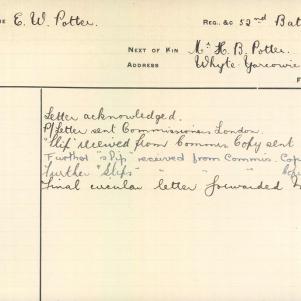 E. W. Potter. REG. &C 52nd Bat
NEXT OF KIN Mr H. B. Potter.
ADDRESS Whyte Yarcowie
Letter acknowledged.
P/Letter sent Commissioners London.
"Slip" received from Commrs Copy sent
Further "slip" received from Commis. Cop
further "Slips" " " "
Final circular letter forwarded